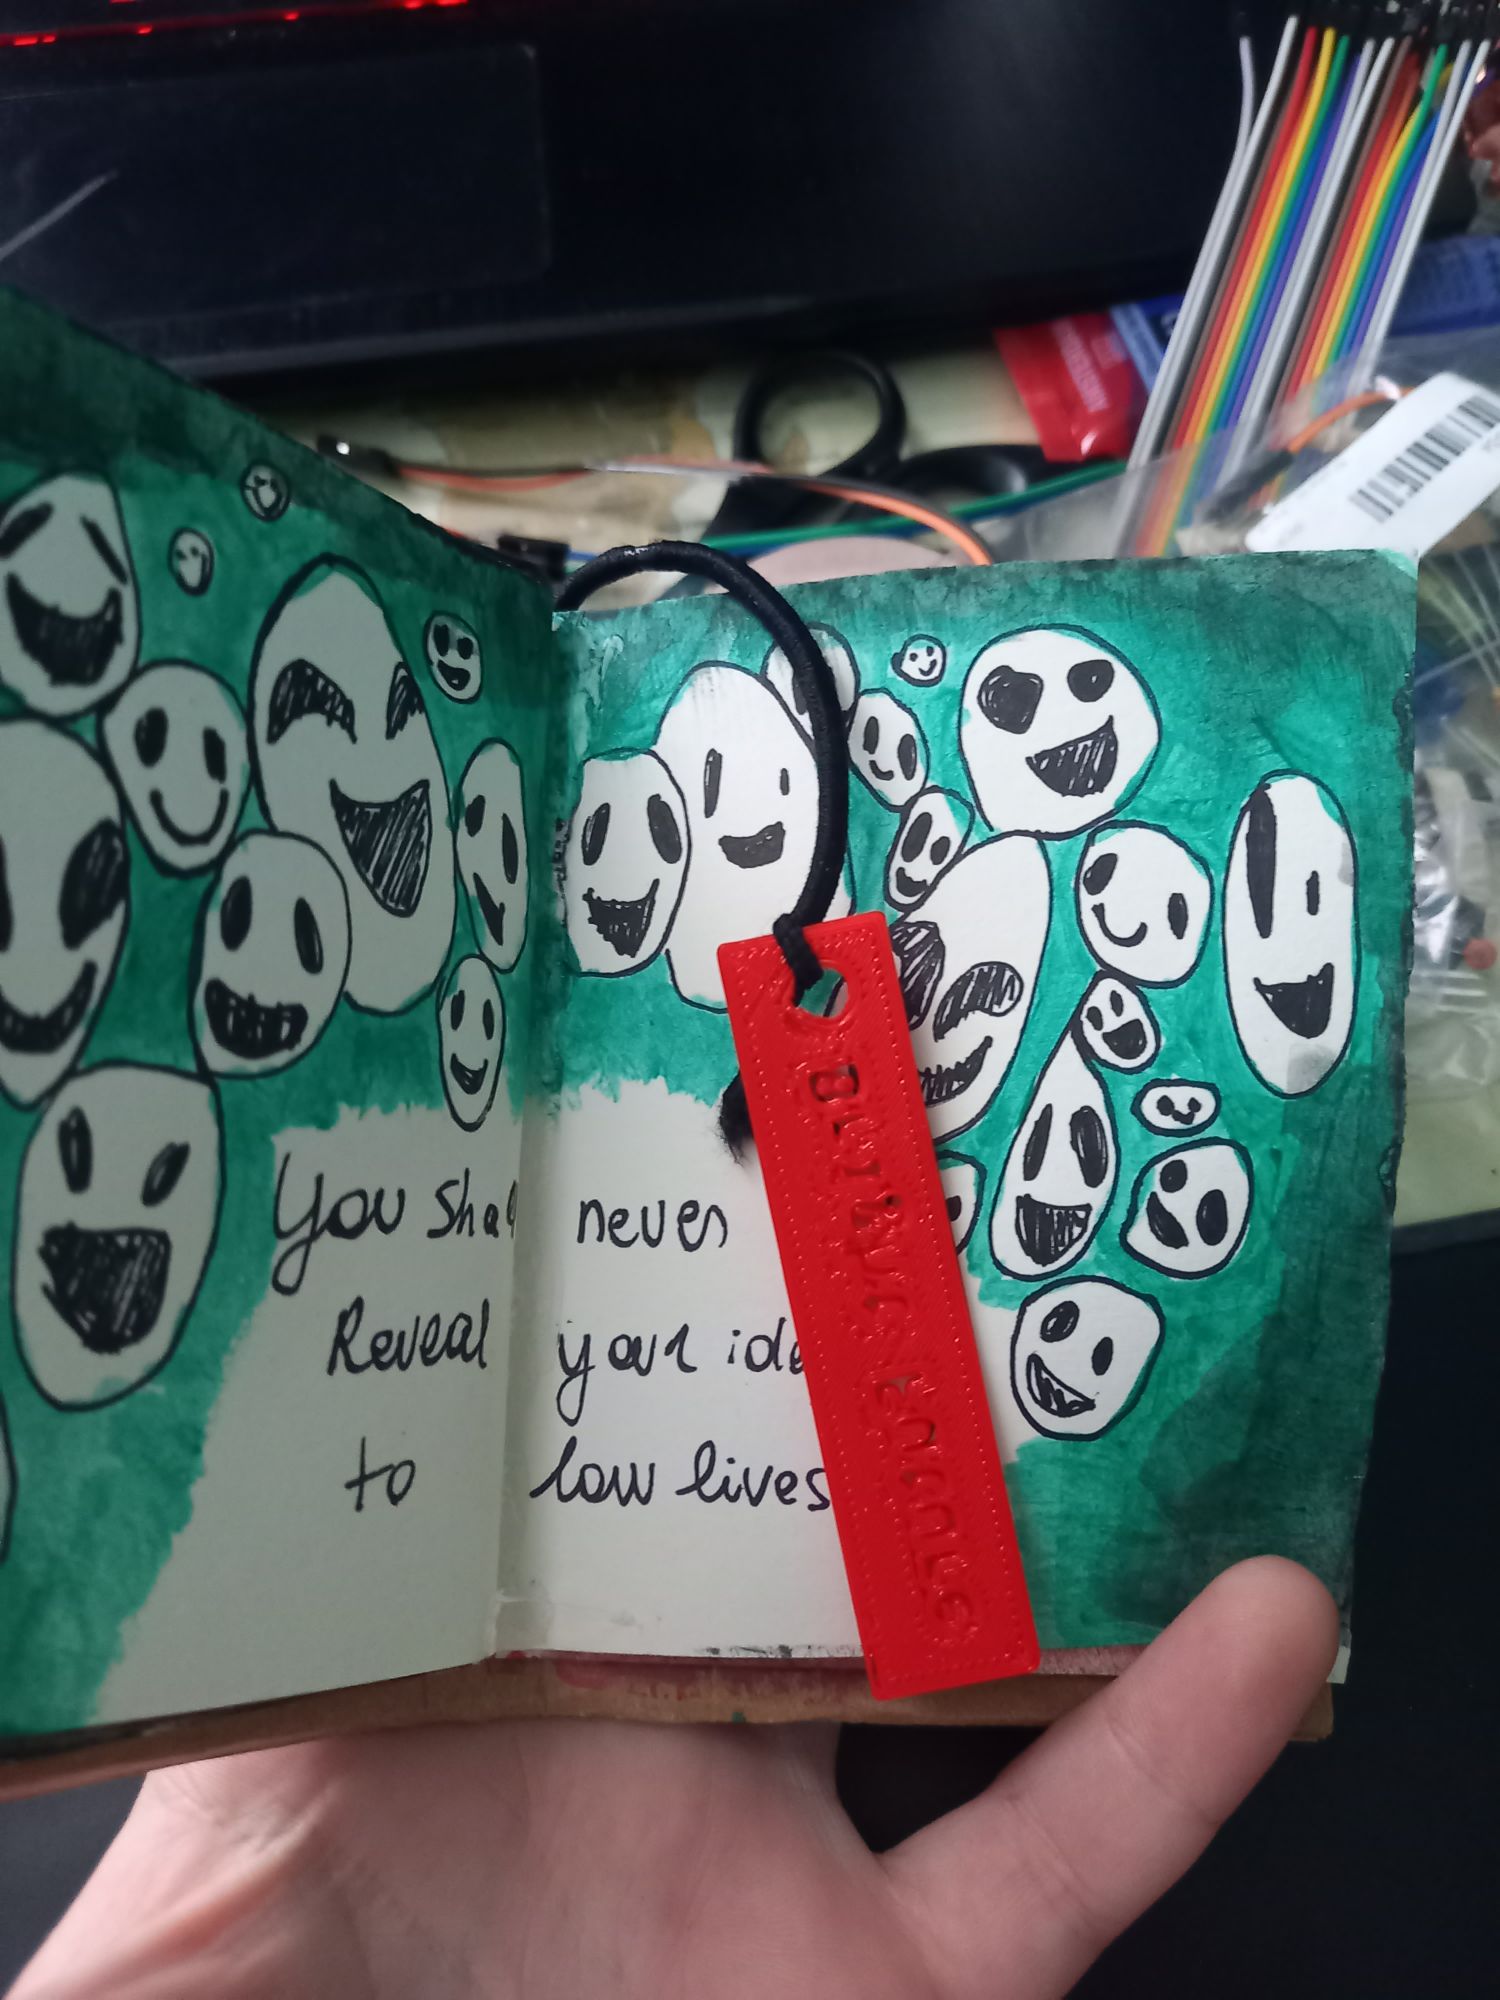 You shall never
Reveal your ide
to low lives